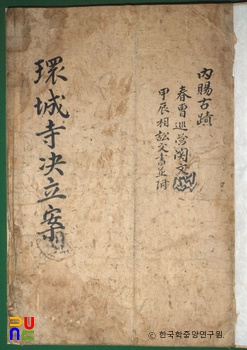 內賜古蹟
春曹巡營関文
甲辰相訟文書並附
環城寺决立案
© 한국학중앙연구원